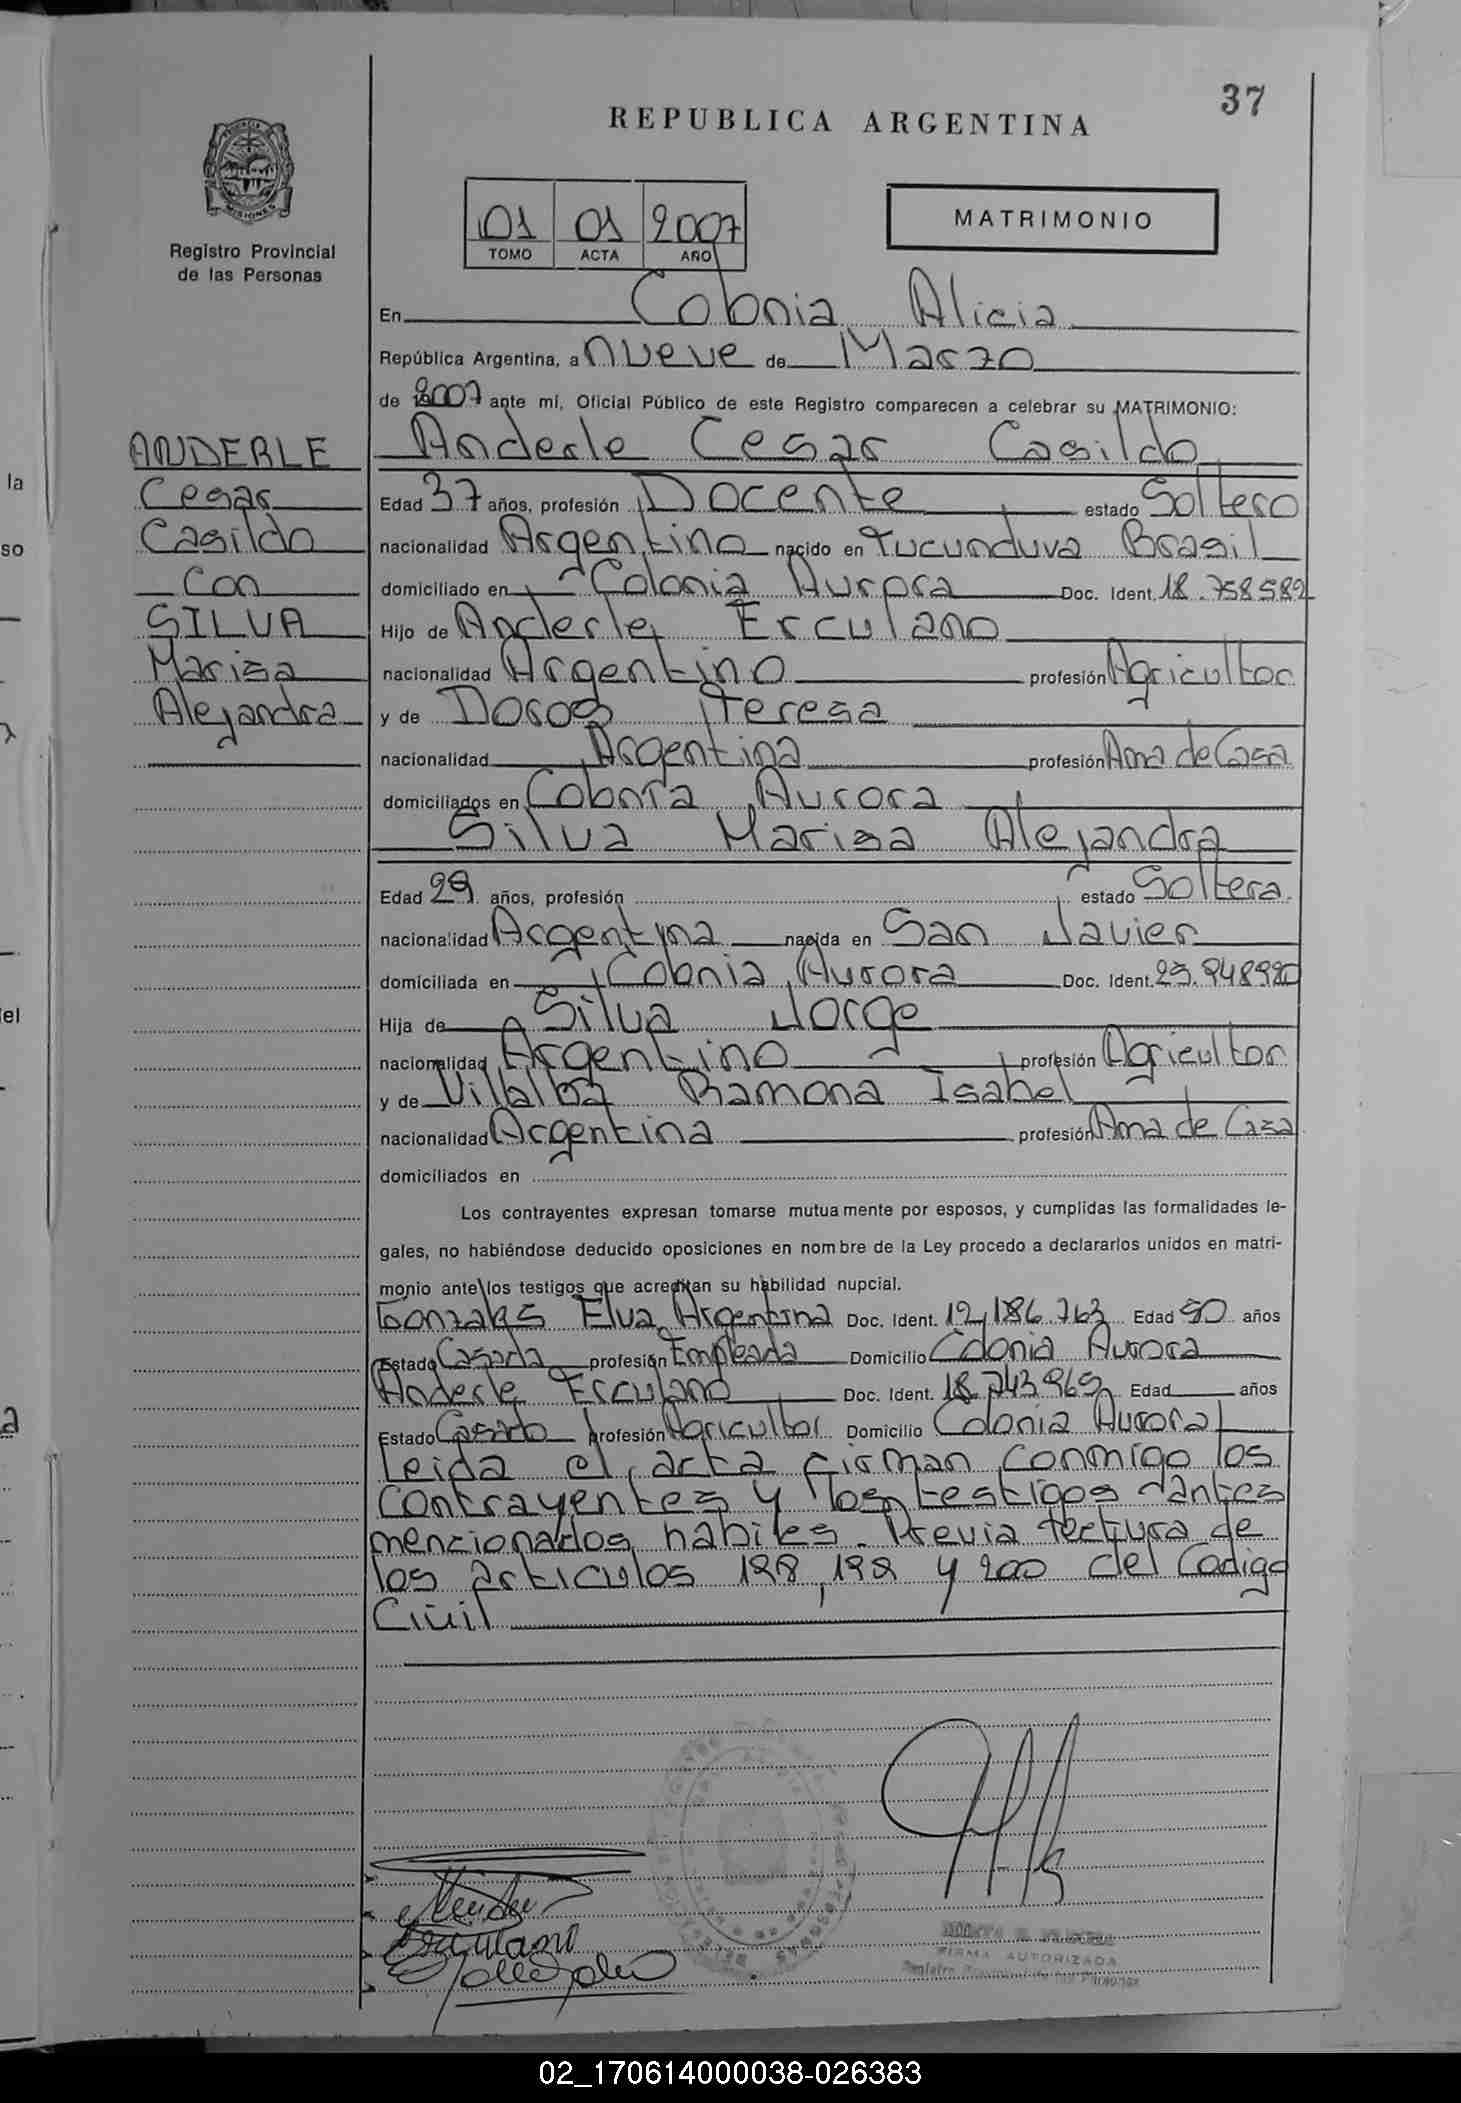 37
REPUBLICA ARGENTINA
PROVINCIA DE MISIONES
Registro Provincial
de las Personas
01 01 2007
TOMO ACTA AÑO
MATRIMONIO
En Colonia Alicia
República Argentina, a nueve de Marzo
de 2007 ante mí, Oficial Público de este Registro comparecen a celebrar su MATRIMONIO:
ANDERLE
Cesar
Casildo
Con
SILVA
Marisa
Alejandra
Anderle Cesar Casildo
Edad 37 años, profesión Docente estado Soltero
nacionalidad Argentino nacido en Tucunduva Brasil
domiciliado en Colonia Aurora Doc. Ident. 18.758.582
Hijo de Anderle, Erculano
nacionalidad Argentino profesión Agricultor
y de Teresa
nacionalidad Argentina profesión Ama de Casa
domiciliados en Colonia Aurora
Silva Marisa Alejandra
Edad 29 años, profesión estado Soltera
nacionalidad Argentina nacida en San Javier
domiciliada en Colonia Aurora Doc. Ident.
Hija de Silva Jorge
nacionalidad Argentino profesión Agricultor
y de Villalba Ramona Isabel
nacionalidad Argentina profesión Ama de Casa
domiciliados en
Los contrayentes expresan tomarse mutuamente por esposos, y cumplidas las formalidades le-
gales, no habiéndose deducido oposiciones en nombre de la Ley procedo a declararlos unidos en matri-
monio ante los testigos que acreditan su habilidad nupcial.
Gonzales Elva, Argentina Doc. Ident. 12,186.763 Edad 50 años
Estado Casada profesión Empleada Domicilio Colonia Aurora
Anderle Erculano Doc. Ident. 18.743.969 Edad años
Estado Casado profesión Agricultor Domicilio Colonia Aurora
Leida el acta firman conmigo los
contrayentes y los testigos dantes
mencionados habiles. Previa lectura de
los articulos 198, 199 y 200 del Codigo
Civil
Erculano
FIRMA AUTORIZADA
Registro Provincial de las Personas
02_170614000038-026383